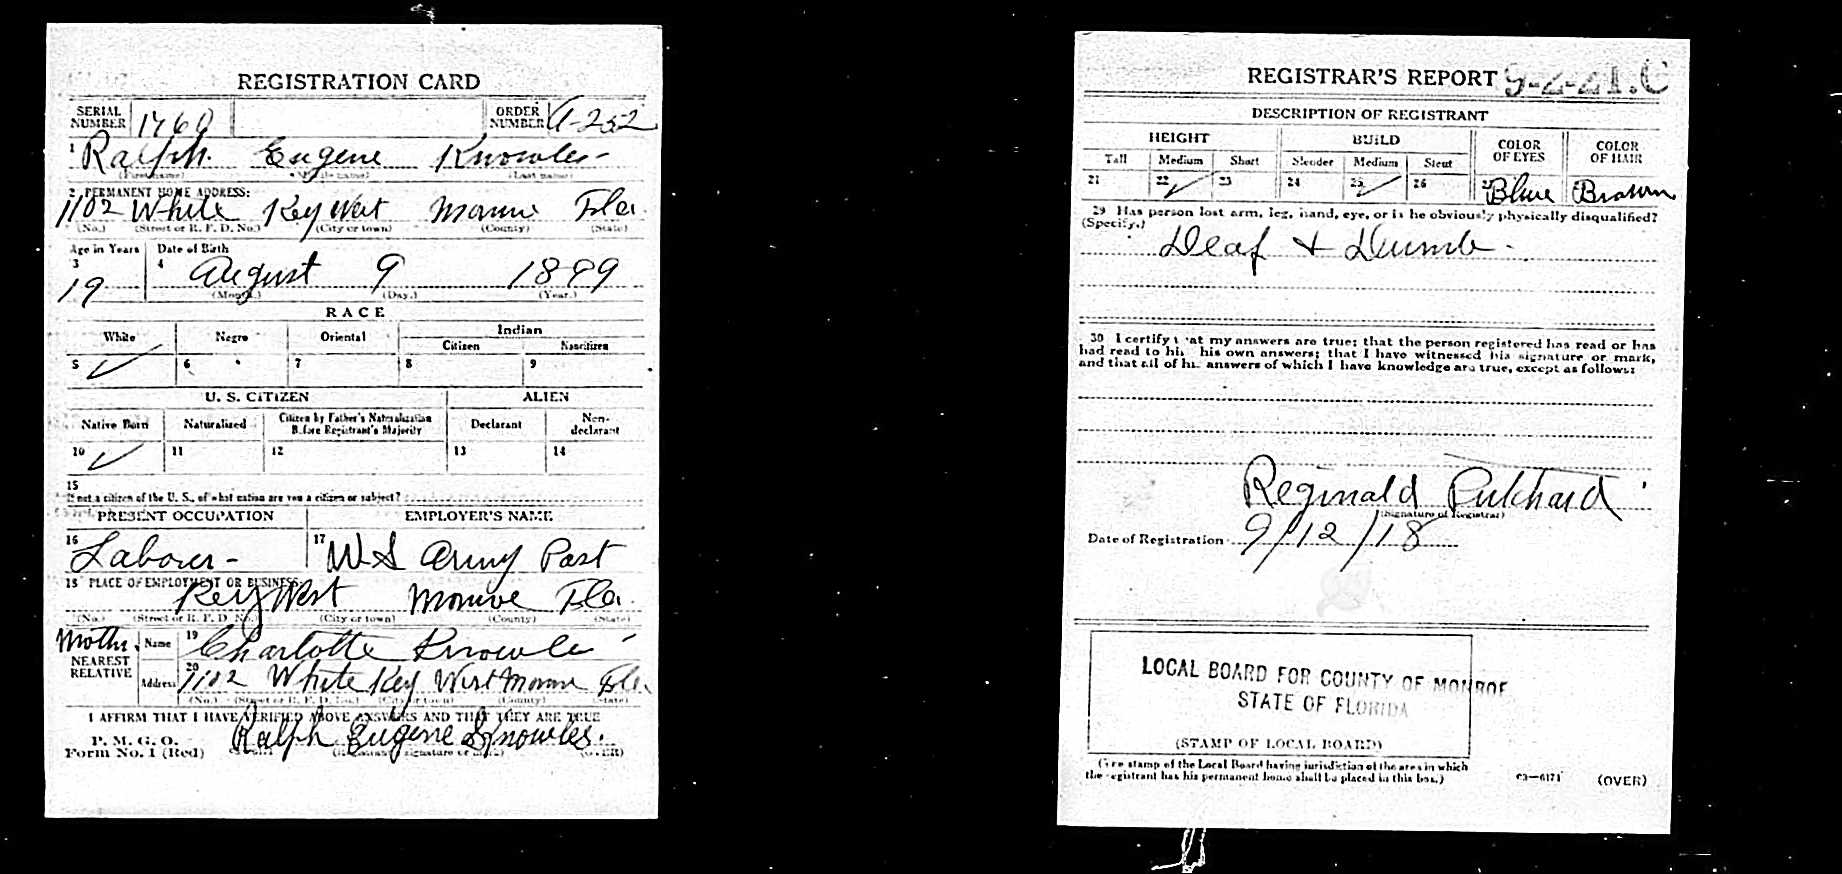 REGISTRATION CARD
SERIAL NUMBER 1760 ORDER NUMBER A-252
1 Ralph Eugene Knowles
(First name) (Middle name) (Last name)
2 PERMANENT HOME ADDRESS:
1102 White Key West Monroe Fla.
(No.) (Street or R. F. D. No.) (City or town) (County) (State)
Age in Years Date of Birth
3 19 4 August 9 1899
(Month.) (Day.) (Year.)
RACE
White Negro Oriental Indian
Citizen Noncitizen
5 ✓ 6 7 8 9
U. S. CITIZEN ALIEN
Native Born Naturalized Citizen by Father's Naturalization Before Registrant's Majority Declarant Non-declarant
10 ✓ 11 12 13 14
15
If not a citizen of the U. S., of what nation are you a citizen or subject?
PRESENT OCCUPATION EMPLOYER'S NAME
16 Labour- 17 U S Army Post
18 PLACE OF EMPLOYMENT OR BUSINESS:
Key West Monroe Fla.
(No.) (Street or R. F. D. No.) (City or town) (County) (State)
Mother. Name 19 Charlotte Knowles
NEAREST RELATIVE
Address 20 1102 White Key West Monroe Fla
(No.) (Street or R. F. D. No.) (City or town) (County) (State)
I AFFIRM THAT I HAVE VERIFIED ABOVE ANSWERS AND THAT THEY ARE TRUE
P. M. G. O.
Form No. 1 (Red) Ralph Eugene Knowles.
(Registrant's signature or mark) (OVER)
REGISTRAR'S REPORT 9-2-21.C
DESCRIPTION OF REGISTRANT
HEIGHT BUILD COLOR OF EYES COLOR OF HAIR
Tall Medium Short Slender Medium Stout
21 22 ✓ 23 24 25 ✓ 26 Blue Brown
29 Has person lost arm, leg, hand, eye, or is he obviously physically disqualified?
(Specify.)
Deaf + Dumb.
30 I certify that my answers are true; that the person registered has read or has
had read to him his own answers; that I have witnessed his signature or mark,
and that all of his answers of which I have knowledge are true, except as follows:
Reginald
(Signature of Registrar)
Date of Registration 9/12/18
LOCAL BOARD FOR COUNTY OF MONROE
STATE OF FLORIDA
(STAMP OF LOCAL BOARD)
(The stamp of the Local Board having jurisdiction of the area in which
the registrant has his permanent home shall be placed in this box.)
03—6171 (OVER)